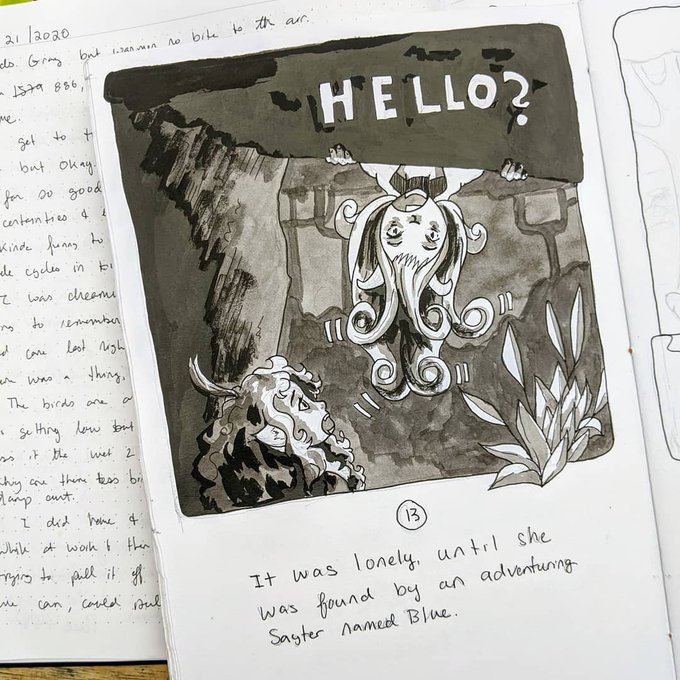 21/2020
ds. Gray but warmer no bite to th air.
1579 886,
me.
get to t
but okay.
for so good
centernities &
Kinda funny to
de cycles in bi
I was dreami
ns to remember
d care last nigh
ere was a thing,
The birds are a
getting low but
ss it the wet 2
they are there less bi
damp out.
I did have &
while at work & then
trying to pull it off
me can, could pul
HELLO?
13
It was lonely, until she
was found by an adventuring
Sayter named Blue.